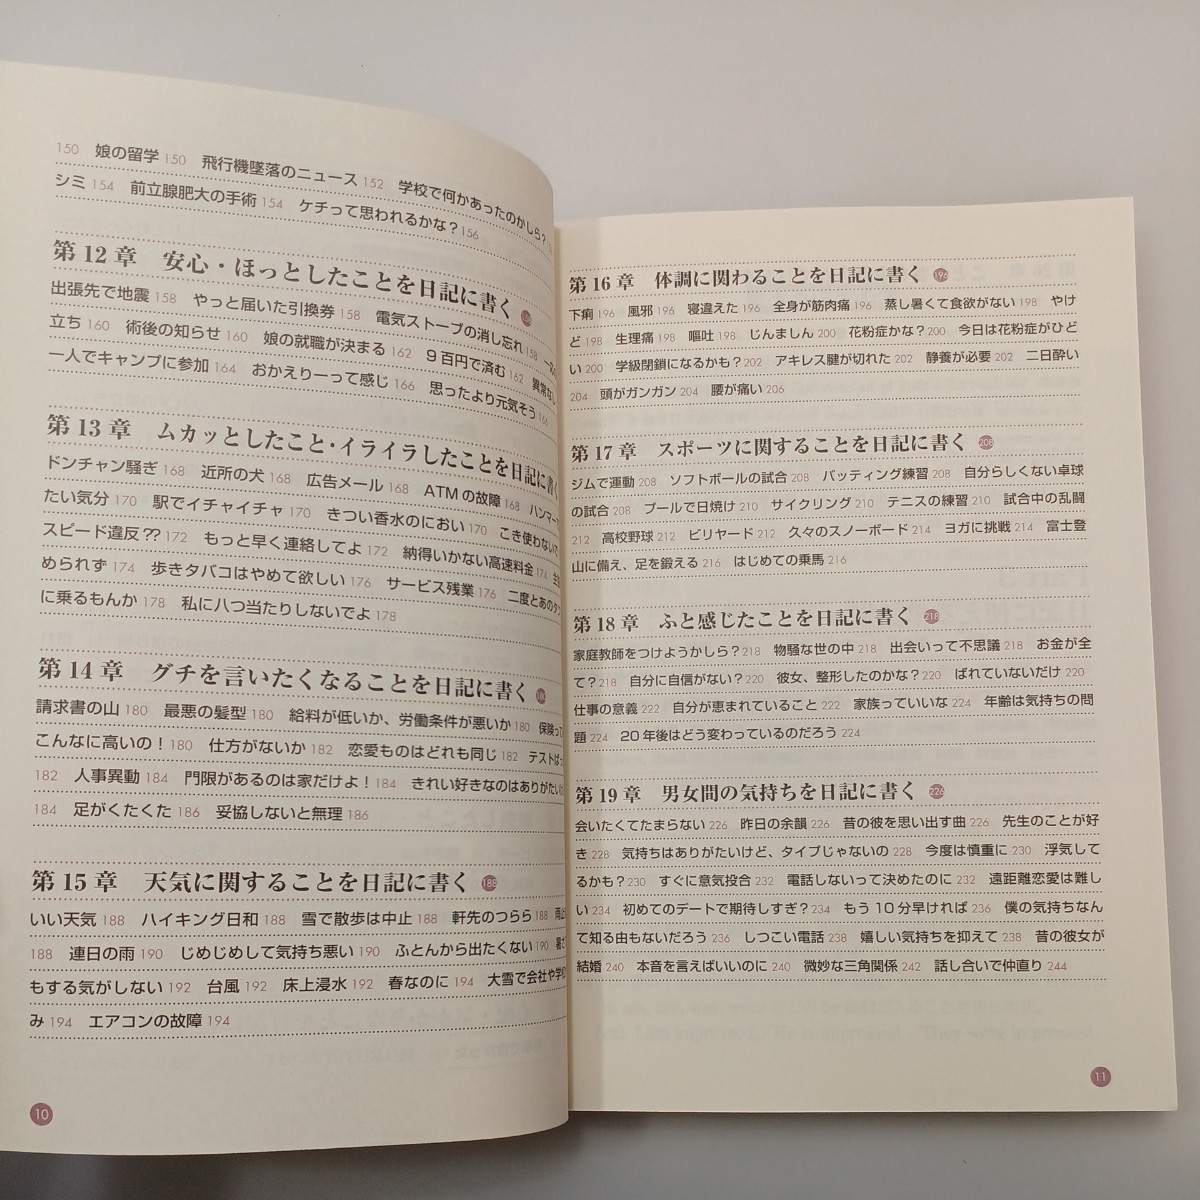 150 娘の留学 150 飛行機墜落のニュース 152 学校で何かあったのかしら?
シミ 154 前立腺肥大の手術 154 ケチって思われるかな? 156
第12章 安心・ほっとしたことを日記に書く
出張先で地震 158 やっと届いた引換券 158 電気ストーブの消し忘れ 158
立ち 160 術後の知らせ 160 娘の就職が決まる 162 9百円で済む 162 異常なし
一人でキャンプに参加 164 おかえりーって感じ 166 思ったより元気そう 166
第13章 ムカッとしたこと・イライラしたことを日記に書く
ドンチャン騒ぎ 168 近所の犬 168 広告メール 168 ATMの故障 168 ハンマーで
たい気分 170 駅でイチャイチャ 170 きつい香水のにおい 170 こき使わないで
スピード違反?? 172 もっと早く連絡してよ 172 納得いかない高速料金 174
められず 174 歩きタバコはやめて欲しい 176 サービス残業 176 二度とあのタク
に乗るもんか 178 私に八つ当たりしないでよ 178
第14章 グチを言いたくなることを日記に書く 180
請求書の山 180 最悪の髪型 180 給料が低いか、労働条件が悪いか 180 保険って
こんなに高いの! 180 仕方がないか 182 恋愛ものはどれも同じ 182 テストばっ
182 人事異動 184 門限があるのは家だけよ! 184 きれい好きなのはありがたいけ
184 足がくたくた 186 妥協しないと無理 186
第15章 天気に関することを日記に書く 188
いい天気 188 ハイキング日和 188 雪で散歩は中止 188 軒先のつらら 188
188 連日の雨 190 じめじめして気持ち悪い 190 ふとんから出たくない 190 暑さ
もする気がしない 192 台風 192 床上浸水 192 春なのに 194 大雪で会社や学校
み 194 エアコンの故障 194
10
第16章 体調に関わることを日記に書く 196
下痢 196 風邪 196 寝違えた 196 全身が筋肉痛 196 蒸し暑くて食欲がない 198 やけ
ど 198 生理痛 198 嘔吐 198 じんましん 200 花粉症かな? 200 今日は花粉症がひど
い 200 学級閉鎖になるかも? 202 アキレス腱が切れた 202 静養が必要 202 二日酔い
204 頭がガンガン 204 腰が痛い 206
第17章 スポーツに関することを日記に書く 208
ジムで運動 208 ソフトボールの試合 208 バッティング練習 208 自分らしくない卓球
の試合 208 プールで日焼け 210 サイクリング 210 テニスの練習 210 試合中の乱闘
212 高校野球 212 ビリヤード 212 久々のスノーボード 214 ヨガに挑戦 214 富士登
山に備え、足を鍛える 216 はじめての乗馬 216
第18章 ふと感じたことを日記に書く 218
家庭教師をつけようかしら? 218 物騒な世の中 218 出会いって不思議 218 お金が全
て? 218 自分に自信がない? 220 彼女、整形したのかな? 220 ばれていないだけ 220
仕事の意義 222 自分が恵まれていること 222 家族っていいな 224 年齢は気持ちの問
題 224 20年後はどう変わっているのだろう 224
第19章 男女間の気持ちを日記に書く 226
会いたくてたまらない 226 昨日の余韻 226 昔の彼を思い出す曲 226 先生のことが好
き 228 気持ちはありがたいけど、タイプじゃないの 228 今度は慎重に 230 浮気して
るかも? 230 すぐに意気投合 232 電話しないって決めたのに 232 遠距離恋愛は難し
い 234 初めてのデートで期待しすぎ? 234 もう10分早ければ 236 僕の気持ちなん
て知る由もないだろう 236 しつこい電話 238 嬉しい気持ちを抑えて 238 昔の彼女が
結婚 240 本音を言えばいいのに 240 微妙な三角関係 242 話し合いで仲直り 244
11